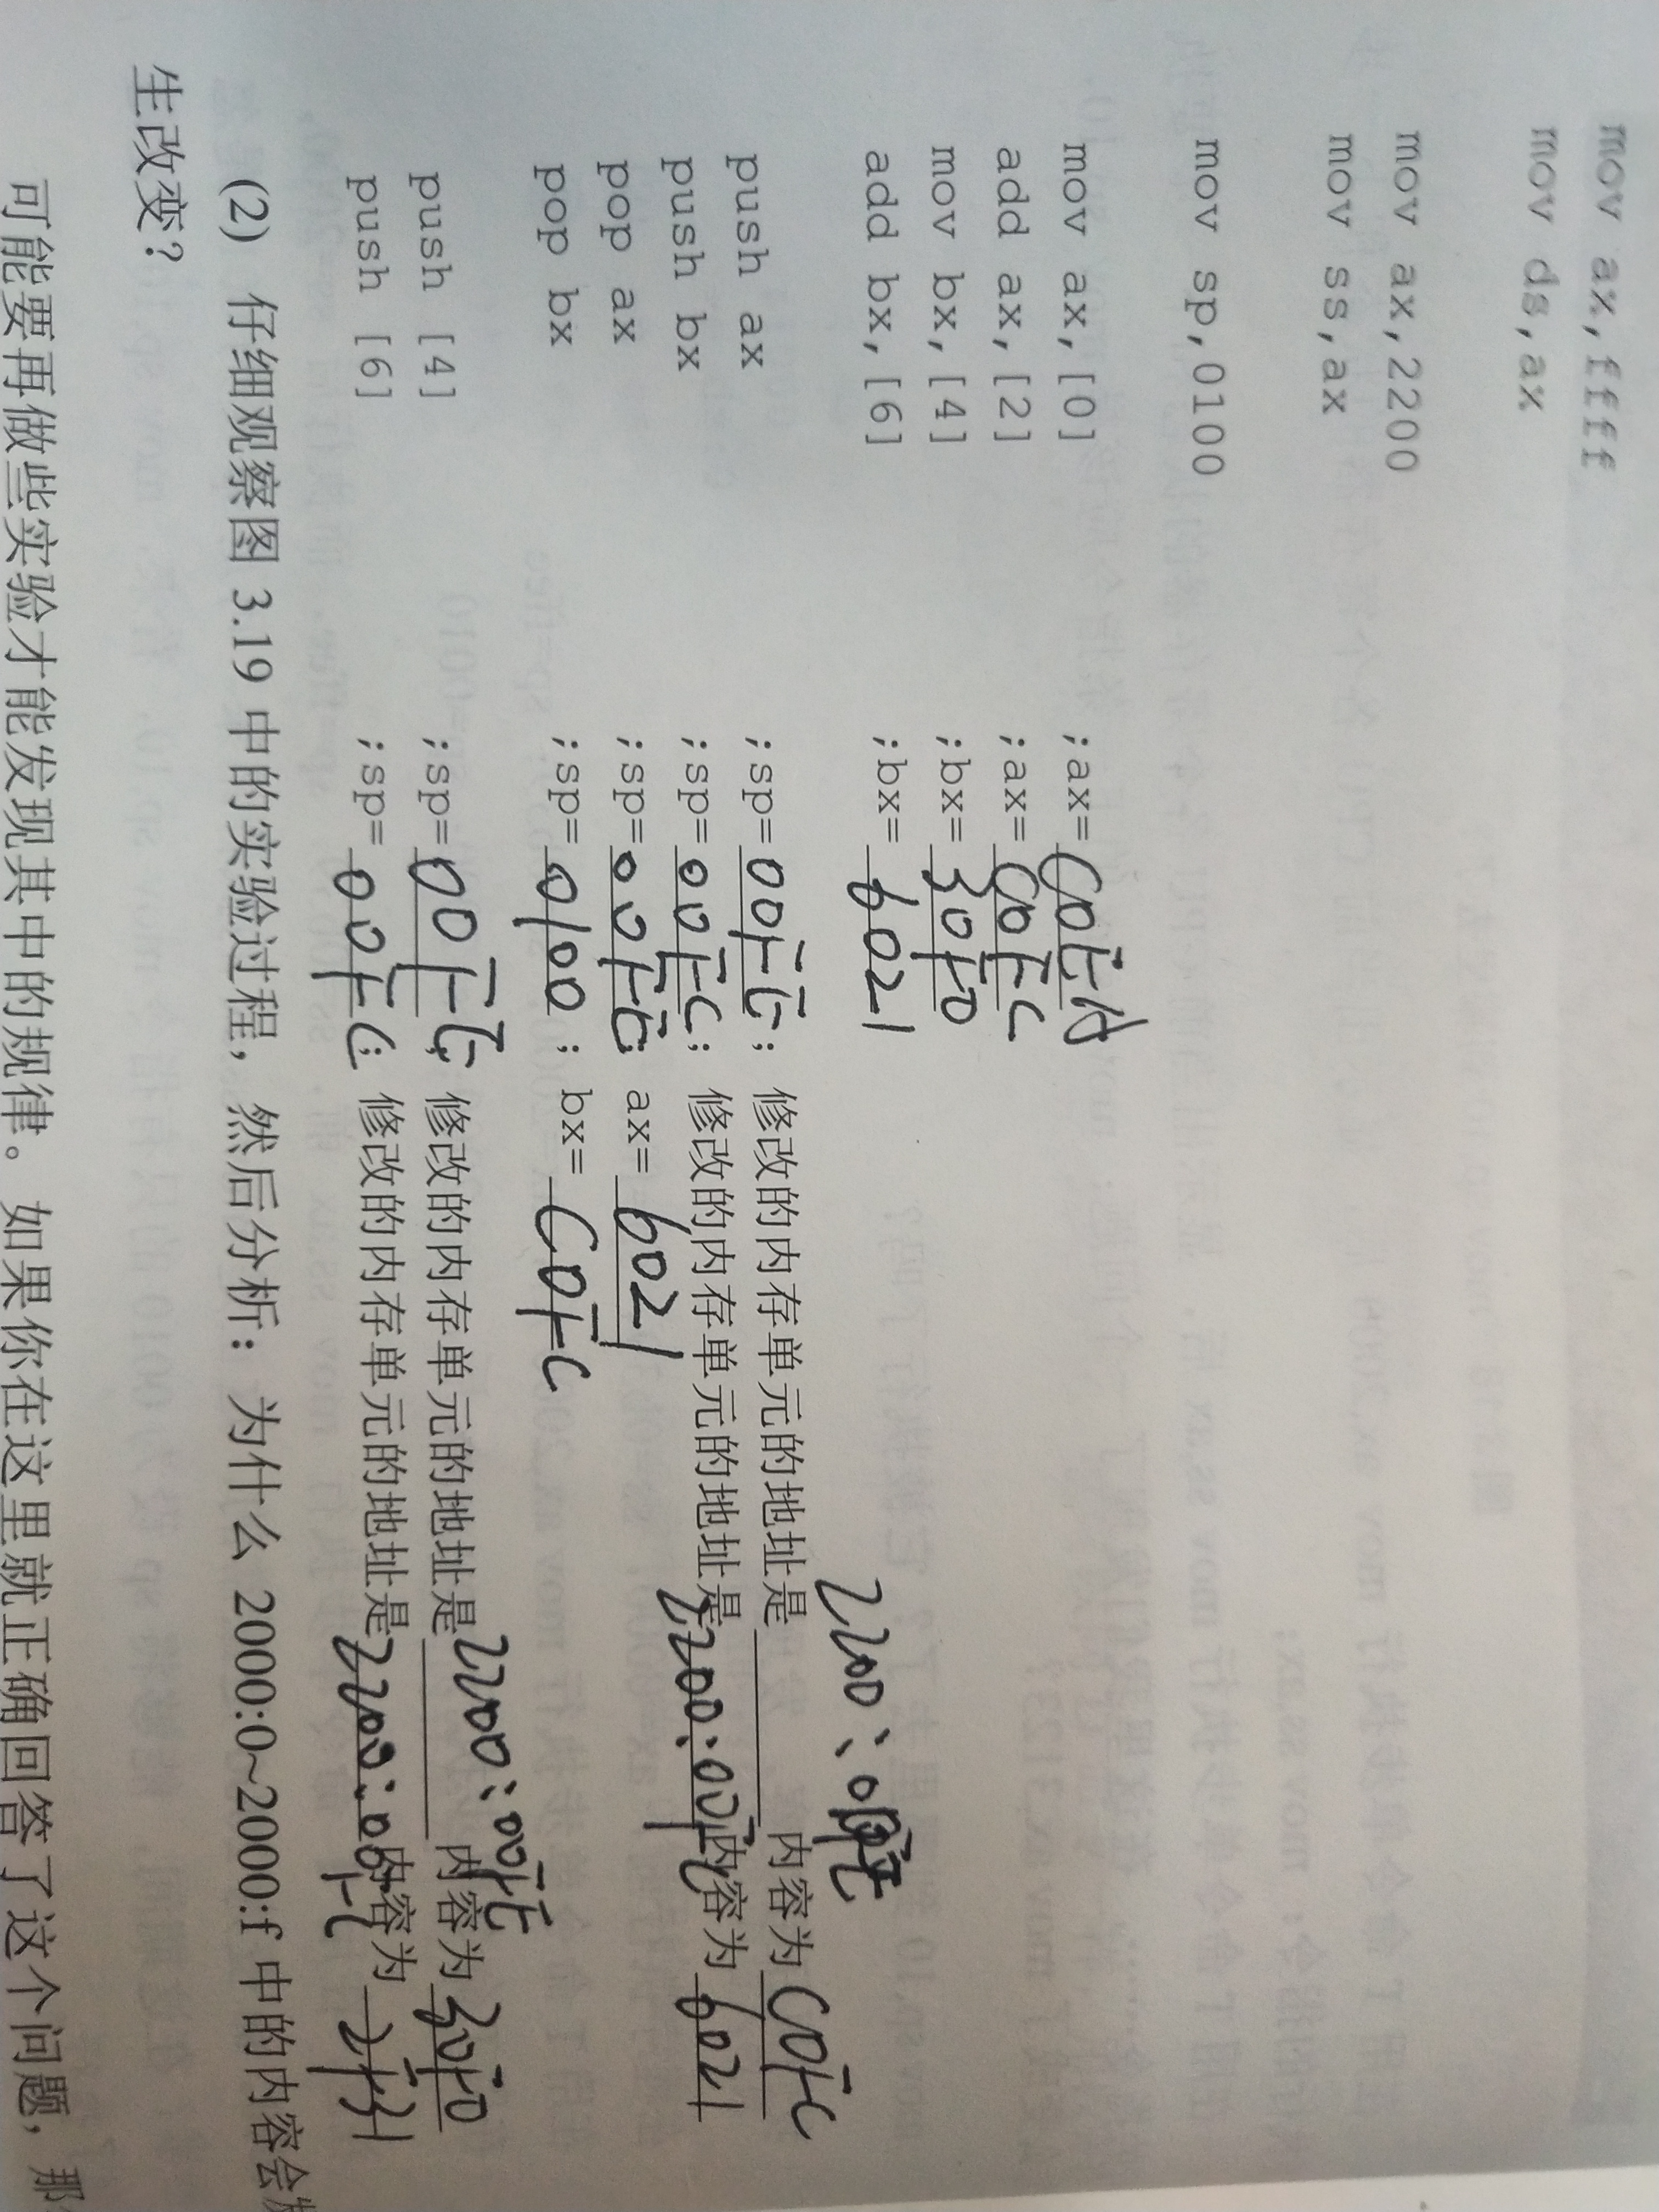 mov ax,ffff
mov ds,ax
mov ax,2200
mov ss,ax
mov sp,0100
mov ax,[0] ;ax=C0EA
add ax,[2] ;ax=C0FC
mov bx,[4] ;bx=30F0
add bx,[6] ;bx=6021
push ax ;sp=00FE; 修改的内存单元的地址是 2200:00FE 内容为 C0FC
push bx ;sp=00FC; 修改的内存单元的地址是 2200:00FC 内容为 6021
pop ax ;sp=00FE; ax=6021
pop bx ;sp=0100; bx=C0FC
push [4] ;sp=00FE; 修改的内存单元的地址是 2200:00FE 内容为 30F0
push [6] ;sp=00FC; 修改的内存单元的地址是 2200:00FC 内容为 2F31
(2) 仔细观察图 3.19 中的实验过程，然后分析：为什么 2000:0~2000:f 中的内容会发
生改变？
可能要再做些实验才能发现其中的规律。如果你在这里就正确回答了这个问题，那